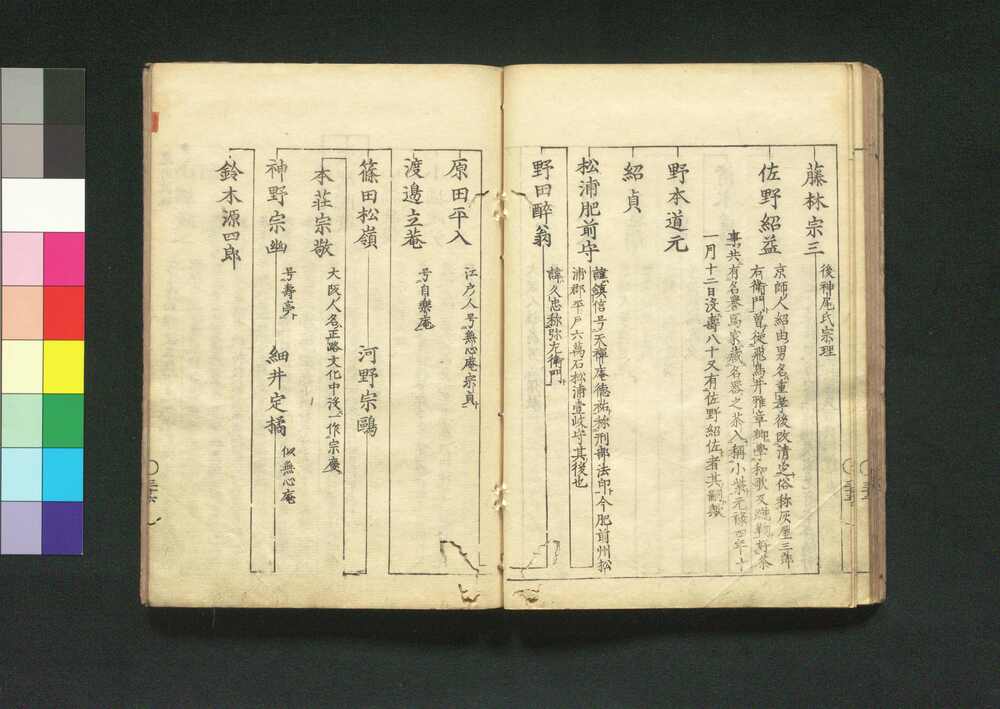 藤林宗三
後神尾氏宗理
佐野紹益
京師ノ人紹由男名重孝後改清定俗称灰屋三郎
右衛門曽従飛鳥井雅章卿學和歌又蹴鞠好茶
事共有名誉焉家蔵名器之茶入稱小紫元禄四年十
一月十二日没壽八十又有佐野紹佐者其嗣歟
野本道元
紹貞
松浦肥前守
諱鎮信号天禅庵德祐称刑部法印今肥前州松
浦郡平戸六萬石松浦壹岐守其後也
野田醉翁
諱久忠称弥左衛門
原田平入
江戸人号無心庵宗貞
渡邉立菴
号自樂庵
篠田松嶺
河野宗鷗
本荘宗敬
大阪ノ人名正路文化中没一作宗慶
神野宗幽
号壽亭
細井定橘
似無心庵
鈴木源四郎